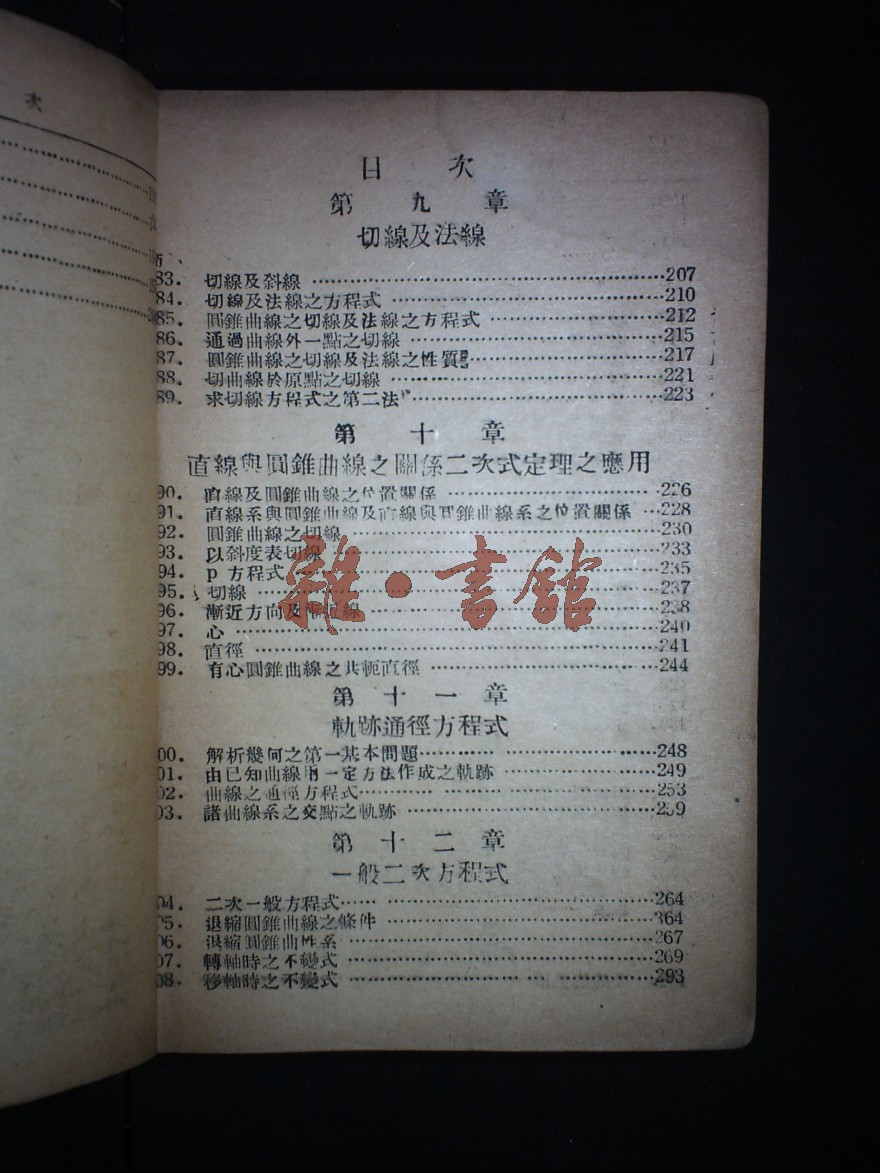 次
目 次
第 九 章
切線及法線
83. 切線及斜線 207
84. 切線及法線之方程式 210
85. 圓錐曲線之切線及法線之方程式 212
86. 通過曲線外一點之切線 215
87. 圓錐曲線之切線及法線之性質 217
88. 切曲線於原點之切線 221
89. 求切線方程式之第二法 223
第 十 章
直線與圓錐曲線之關係二次式定理之應用
90. 直線及圓錐曲線之位置關係 226
91. 直線系與圓錐曲線及直線與圓錐曲線系之位置關係 228
92. 圓錐曲線之切線 230
93. 以斜度表切線 233
94. p 方程式 235
95. 切線 237
96. 漸近方向及漸近線 238
97. 心 240
98. 直徑 241
99. 有心圓錐曲線之共軛直徑 244
第 十 一 章
軌跡通徑方程式
00. 解析幾何之第一基本問題 248
01. 由已知曲線用一定方法作成之軌跡 249
02. 曲線之通徑方程式 253
03. 諸曲線系之交點之軌跡 259
第 十 二 章
一般二次方程式
04. 二次一般方程式 264
05. 退縮圓錐曲線之條件 364
06. 退縮圓錐曲性系 267
07. 轉軸時之不變式 269
08. 移軸時之不變式 293
雜·書館